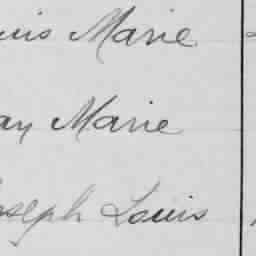 uis Marie
an Marie
oseph Louis